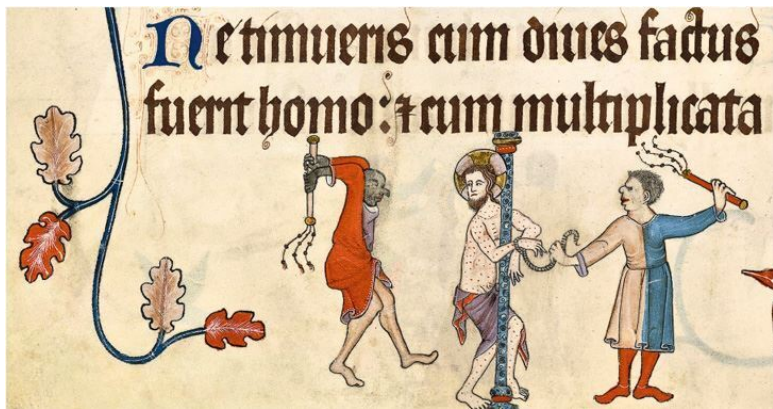 Ne timueris cum diues factus
fuerit homo: ⁊ cum multiplicata